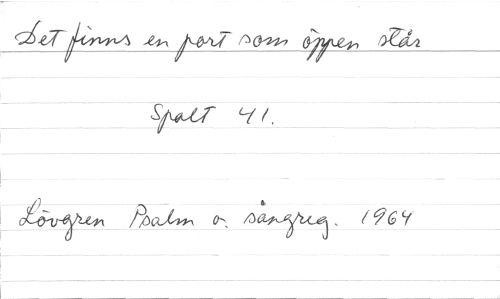 Det finns en port som öppen står
Spalt 41.
Lövgren Psalm o. sångreg. 1964